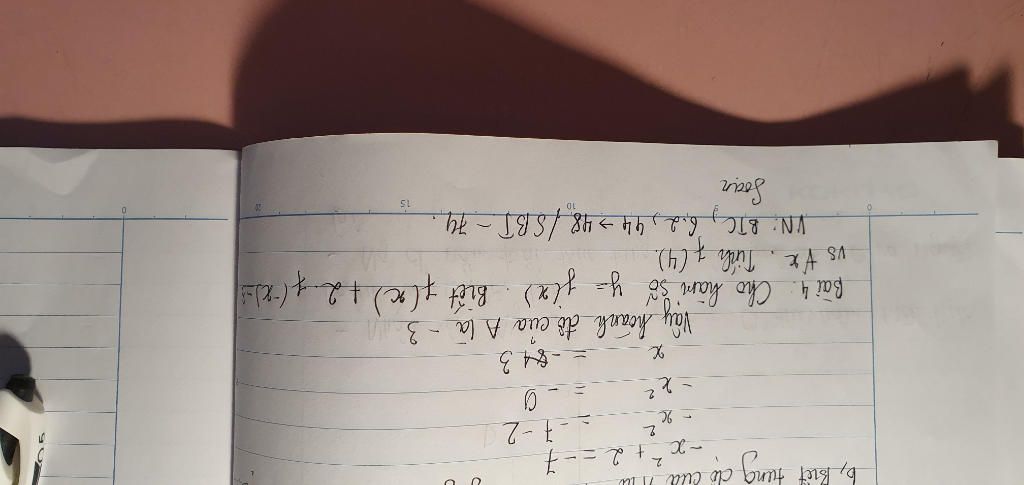 b, Biết tung độ của A là
-x² + 2 = -7
-x² = -7-2
-x² = -9
x = 3
Vậy hoành độ của A là -3
Bài 4: Cho hàm số y = f(x). Biết f(x) + 2. f(-x) =
vs ∀x. Tính f(4)
VN: BTC, 6.2, 44 → 48 / SBT - 74.
Soạn
0 5 10 15 20
0
0.5